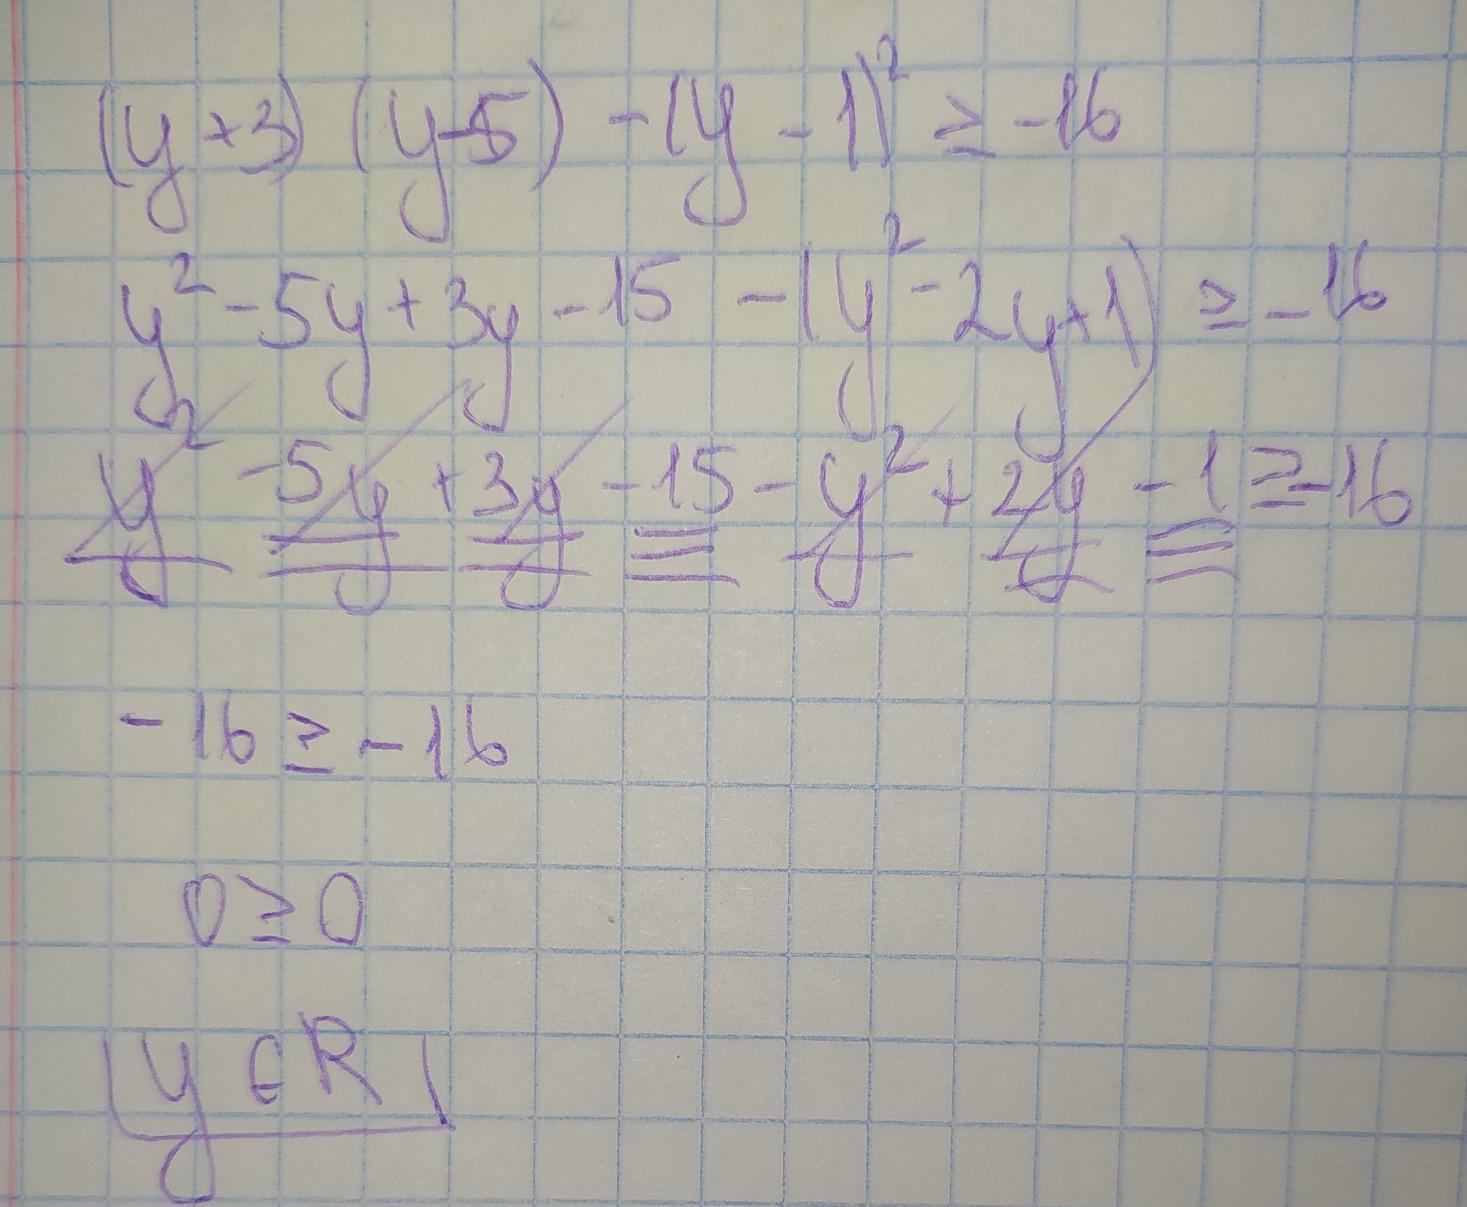 (y+3)(y-5)-(y-1)² ≥ -16
y²-5y+3y-15-(y²-2y+1) ≥ -16
y²-5y+3y-15-y²+2y-1 ≥ -16
-16 ≥ -16
0 ≥ 0
y ∈ R